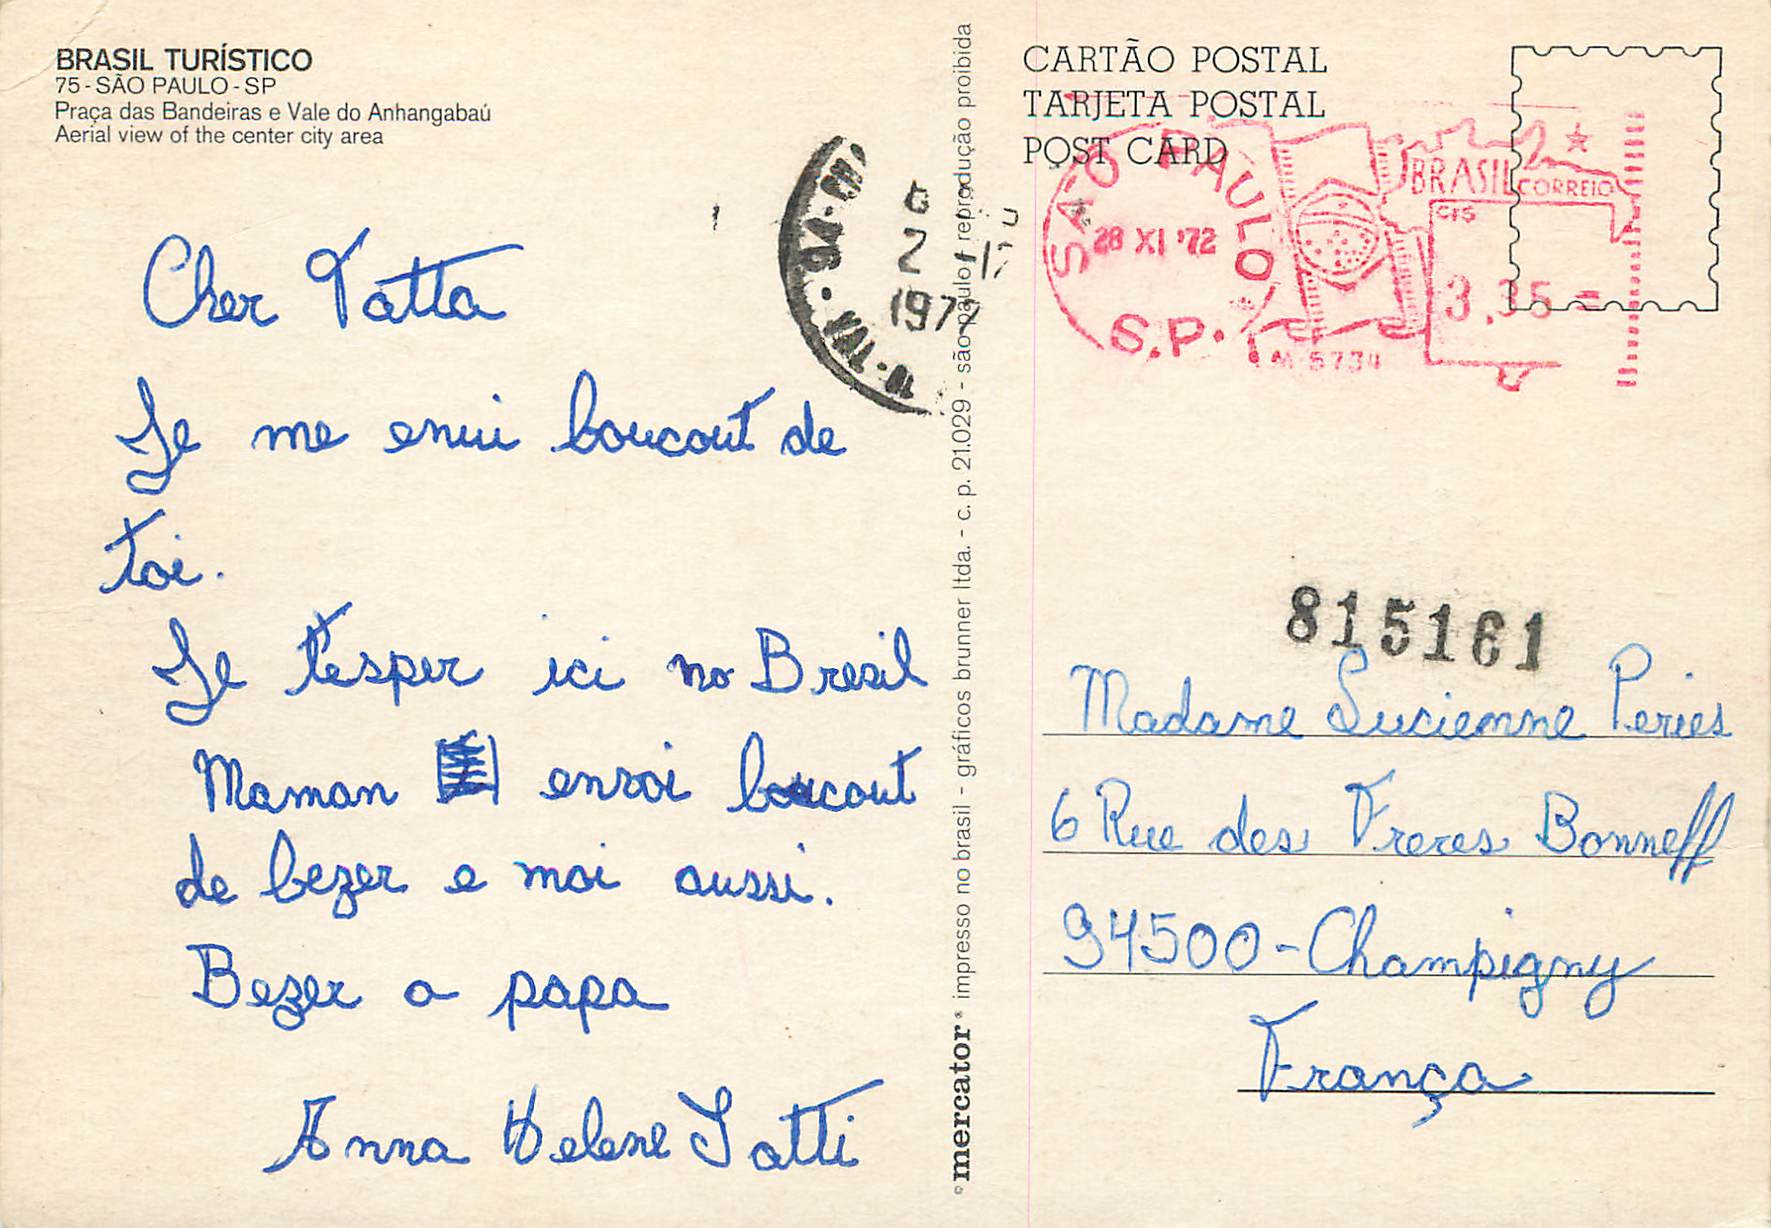 BRASIL TURÍSTICO
75 - SÃO PAULO - SP
Praça das Bandeiras e Vale do Anhangabaú
Aerial view of the center city area
Cher Tatta
Je me enui boucout de
toi.
Je t'esper ici no Bresil
Maman envoi boucout
de bezer e moi aussi.
Bezer a papa
Anna Helene Iatti
94 - CH
6
2 - 12
1972
© mercator® impresso no brasil - gráficos brunner ltda. - c. p. 21.029 - são paulo - reprodução proibida
CARTÃO POSTAL
TARJETA POSTAL
POST CARD
SÃO PAULO
28 XI '72
S.P.
BRASIL CORREIO
CTS
3,35 =
M 5734
815161
Madame Lucienne Peries
6 Rue des Freres Bonneff
94500 - Champigny
França